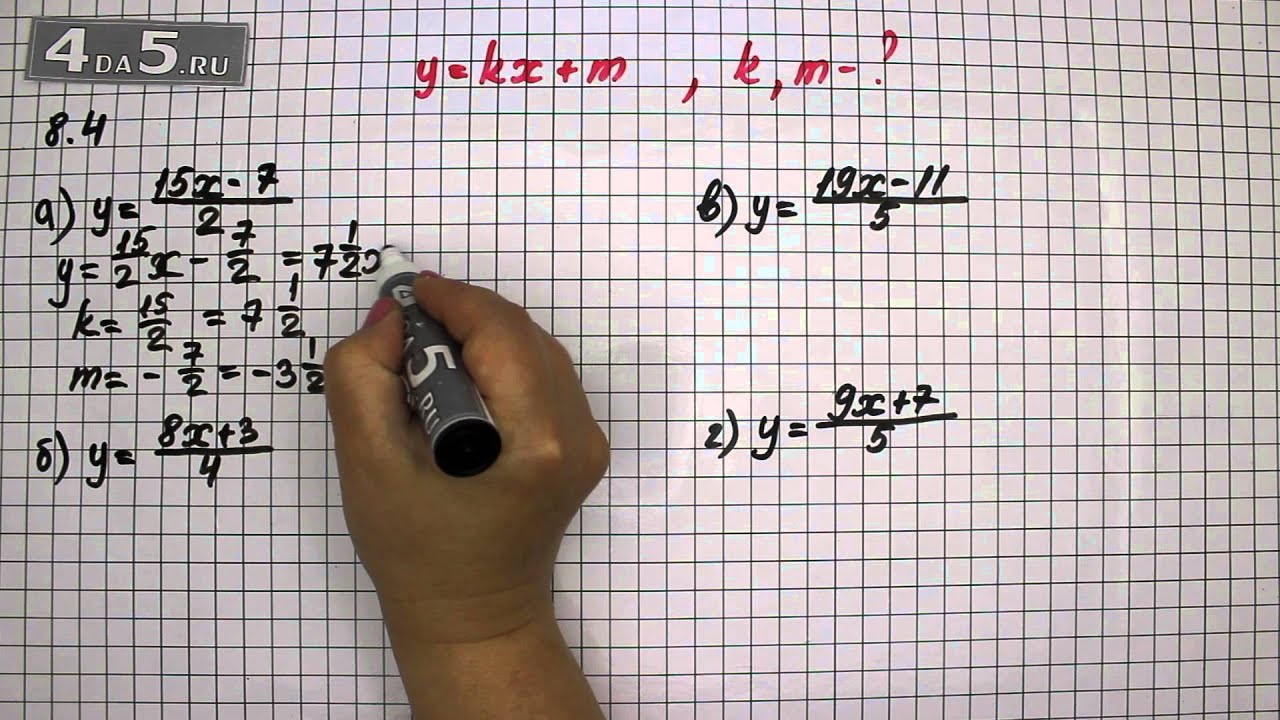 4DA5.RU
y = kx + m , k, m - ?
8.4
а) y = \frac{15x - 7}{2}
y = \frac{15}{2}x - \frac{7}{2} = 7\frac{1}{2}x
k = \frac{15}{2} = 7\frac{1}{2}
m = -\frac{7}{2} = -3\frac{1}{2}
б) y = \frac{8x + 3}{4}
в) y = \frac{19x - 11}{5}
г) y = \frac{9x + 7}{5}
5
.RU